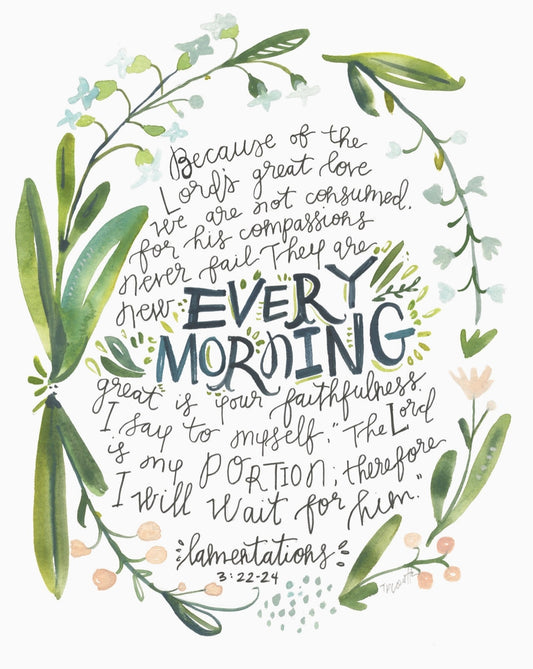 Because of the
Lord's great love
we are not consumed.
for his compassions
never fail They are
new EVERY
MORNING
great is your faithfulness.
I say to myself, "The Lord
is my PORTION; therefore
I will wait for him."
lamentations
3:22-24